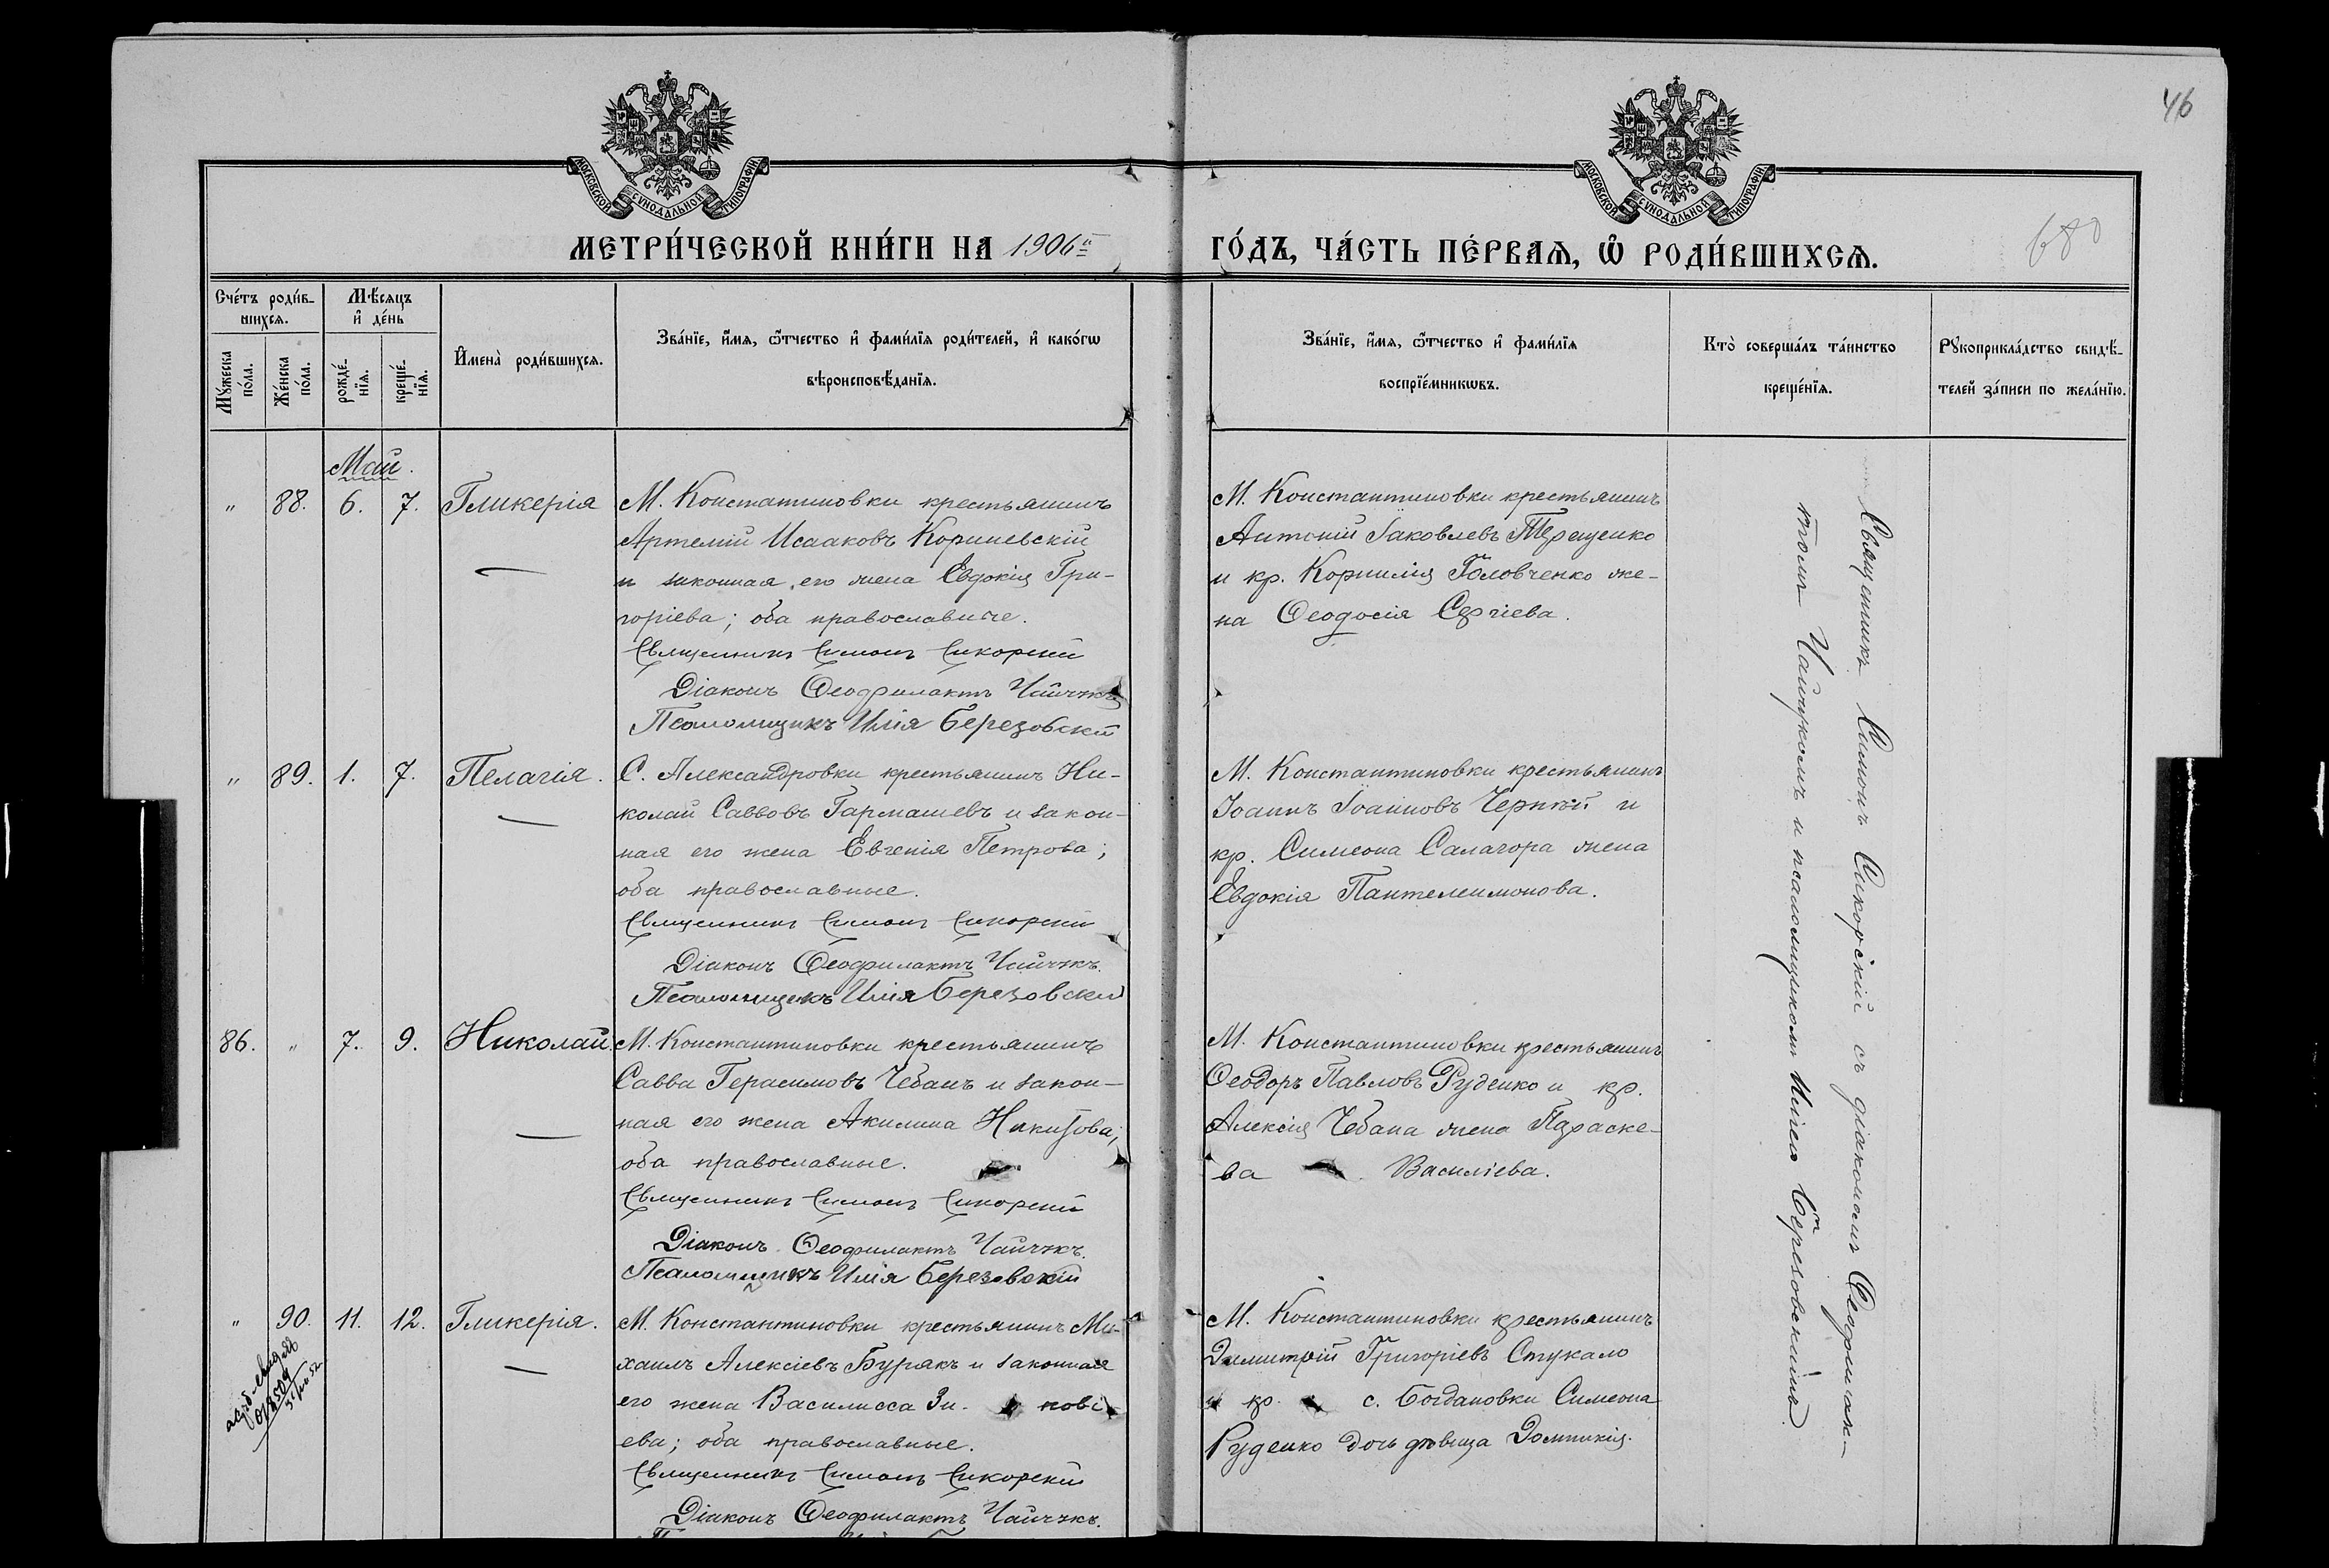 46
680
МОСКОВСКОЙ СУНОДАЛЬНОЙ ТИПОГРАФІИ
МОСКОВСКОЙ СУНОДАЛЬНОЙ ТИПОГРАФІИ
МЕТРИ́ЧЕСКОЙ КНИ́ГИ НА 1906й
ГО́ДЪ, ЧА́СТЬ ПЕ́РВАѦ, Ѡ҆ РОДИ́ВШИХСѦ.
Сче́тъ роди́в-
шихсѧ.
Мꙋ́жеска по́ла.
Же́нска по́ла.
Мѣ́сѧцъ и҆ де́нь
рожде́-нїѧ.
креще́-нїѧ.
И҆мена̀ роди́вшихсѧ.
Зва́нїе, и҆́мѧ, ѻ҆́тчество и҆ фами́лїѧ роди́телей, и҆ како́гѡ
вѣроисповѣ́данїѧ.
Зва́нїе, и҆́мѧ, ѻ҆́тчество и҆ фами́лїѧ
воспрїе́мникѡвъ.
Кто̀ соверша́лъ та́инство
креще́нїѧ.
Рꙋкоприкла́дство свидѣ́-
телей за́писи по жела́нїю.
Май.
" 88. 6. 7. Гликерія
М. Константиновки крестьянинъ
Артемій Исааковъ Коришевскій
и законная его жена Евдокія Гри-
горіева; оба православные.
Священникъ Симонъ Сикорскій
Діаконъ Ѳеофилактъ Чайчукъ
Псаломщикъ Илія Березовскій
М. Константиновки крестьянинъ
Антоній Іаковлевъ Терещенко
и кр. Корнилія Головченко же-
на Ѳеодосія Сергіева.
" 89. 1. 7. Пелагія.
С. Александровки крестьянинъ Ни-
колай Саввовъ Гармашевъ и закон-
ная его жена Евгенія Петрова;
оба православные.
Священникъ Симонъ Сикорскій
Діаконъ Ѳеофилактъ Чайчукъ.
Псаломщикъ Илія Березовскій
М. Константиновки крестьянинъ
Іоаннъ Іоанновъ Черный и
кр. Симеона Салагора жена
Евдокія Пантелеимонова.
86. " 7. 9. Николай.
М. Константиновки крестьянинъ
Савва Герасимовъ Чебанъ и закон-
ная его жена Акилина Никитова;
оба православные.
Священникъ Симонъ Сикорскій
Діаконъ Ѳеофилактъ Чайчукъ.
Псаломщикъ Илія Березовскій
М. Константиновки крестьянинъ
Ѳеодоръ Павловъ Руденко и кр.
Алексія Чебана жена Параске-
ва Василіева.
" 90. 11. 12. Гликерія.
М. Константиновки крестьянинъ Ми-
хаилъ Алексіевъ Бурякъ и законная
его жена Василисса Зи- новi-
ева; оба православные.
Священникъ Симонъ Сикорскій
Діаконъ Ѳеофилактъ Чайчукъ.
М. Константиновки крестьянинъ
Димитрій Григоріевъ Стукало
и кр. с. Богдановки Симеона
Руденко дочь дѣвица Домникія.
Священникъ Симонъ Сикорскій съ діакономъ Ѳеофилак-
томъ Чайчукомъ и псаломщикомъ Иліею Березовскимъ.